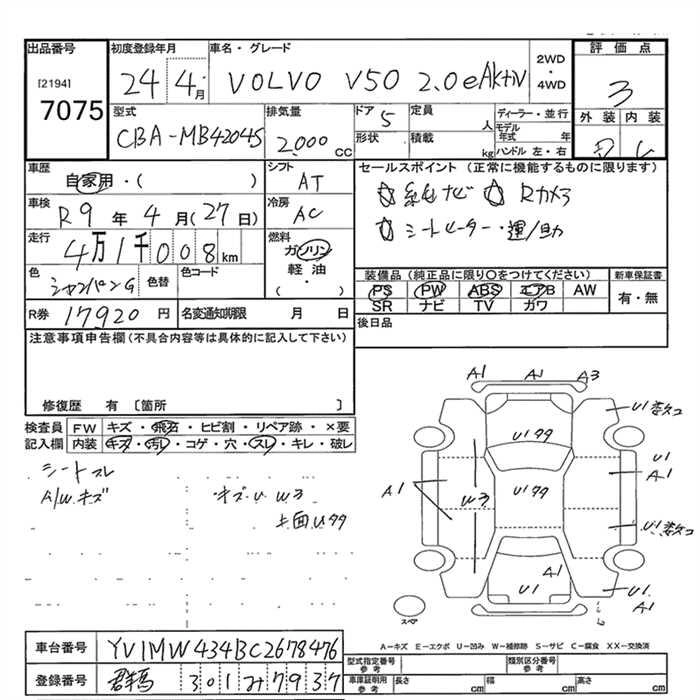 出品番号 初度登録年月 車名・グレード 2WD・4WD 評価点
[2194] 7075 24 4月 VOLVO V50 2.0eAktiv 3
型式 排気量 ドア 5 定員 人 ディーラー・並行 外装 内装
CBA-MB4204S 2,000 cc 形状 積載 kg モデル年式 年 ハンドル 左・右
車歴 シフト セールスポイント(正常に機能するものに限ります)
自家用・( ) AT ☆純正ナビ ☆Rカメラ
車検 R9年4月(27日) 冷房 AC ☆シートヒーター・運/助
走行 4万1千008km 燃料 ガソリン
軽油
( ・ )
色 シャンパンG 色替 色コード 装備品(純正品に限り〇をつけてください) 新車保証書
PS PW ABS エアB AW 有・無
SR ナビ TV ガワ
R券 17920円 名変通知期限 月 日 後日品
注意事項申告欄(不具合内容等は具体的に記入して下さい)
修復歴 有 〔箇所 〕
検査員 FW キズ・飛石・ヒビ割・リペア跡・×要
記入欄 内装 キズ・汚レ・コゲ・穴・スレ・キレ・破レ
シートスレ
A/W.キズ キズ・U W3
A1 A1 A3
U1
U1
A1
A1
U1
U1
A1
A1
U1
スペア
A-キズ E-エクボ U-凹み W-補修跡 S-サビ C-腐食 XX-交換済
車台番号 YV1MW434BC2678476
登録番号 群馬 301み7937
型式指定番号 参考 類別区分番号 参考
車庫証明用 参考 長さ cm 幅 cm 高さ cm